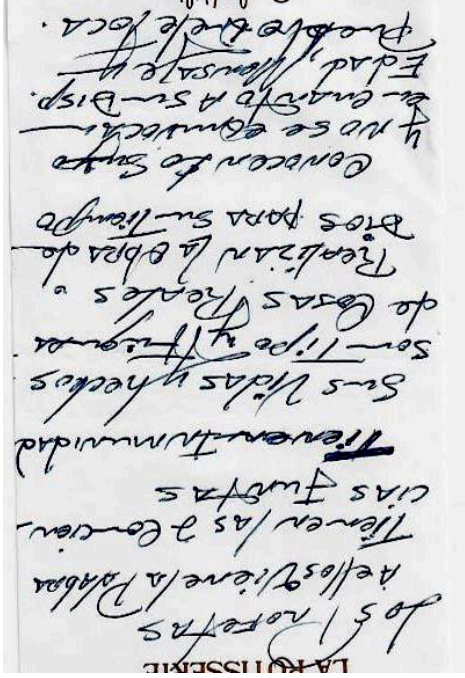 LA ROTISSERIE
Los Profetas
A ellos Viene la Palabra
Tienen las 2 Concien-
cias Juntas
Tienen Inmunidad
Sus Vidas y hechos
son Tipo y Figura
de Cosas Reales.
Realizan la Obra de
DIOS PARA Su Tiempo
Conocen lo Suyo
y no se equivocan
en cuanto A Su Disp.
Edad, Mensaje y
Pueblo que le toca.